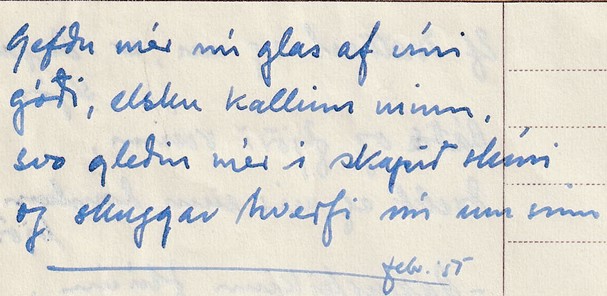 Gefðu mér nú glas af víni
góði, elsku kallinn minn,
svo gleðin mér í skapið skíni
og skuggar hverfi nú um sinn
febr. '55